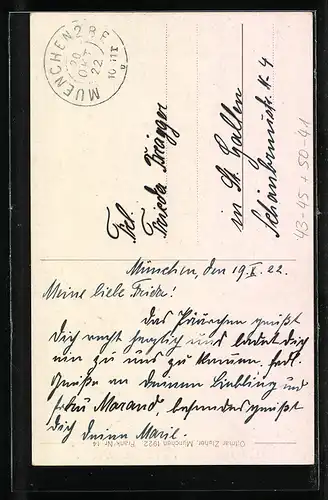 MUENCHEN 2 B.P.
20
OKT
22
Frl.
Frieda Brägger
in St. Gallen
43-45 + 50-41
München, den 19.X.22.
Meine liebe Frieda!
Das Pärchen grüßt
Dich recht herzlich und ladet Dich
ein zu uns zu kommen. Herzl.
Grüße an Deinen Liebling und
Marand, besonders grüßt
Dich Deine Marie
Ottmar Zieher, München 1922. Frank-Nr. 14